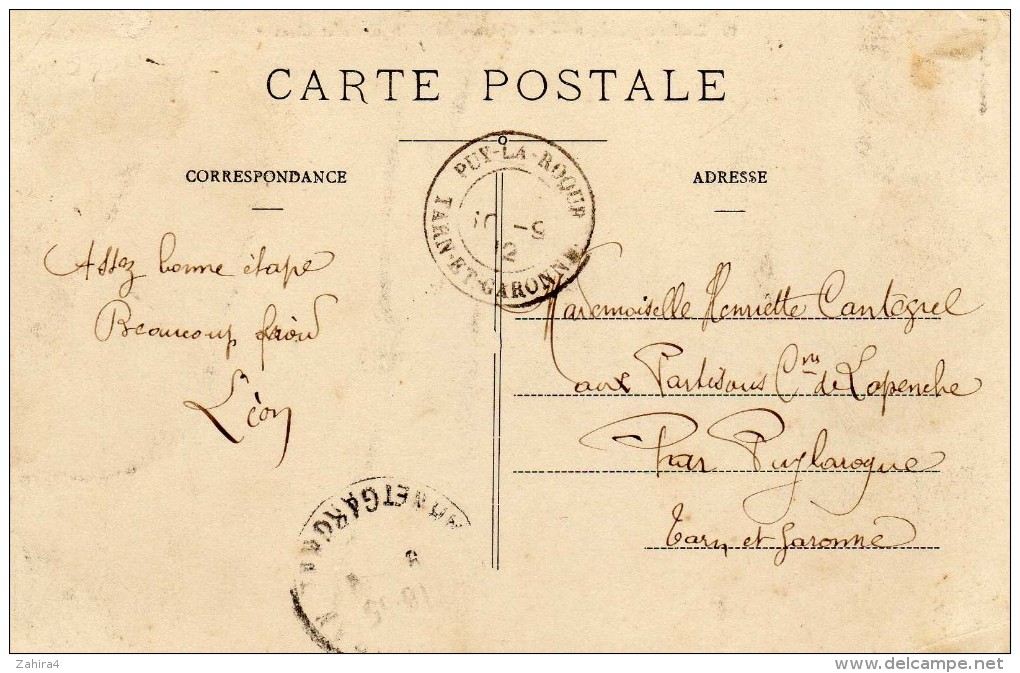 CARTE POSTALE
CORRESPONDANCE
ADRESSE
PUY-LA-ROQUE
TARN-ET-GARONNE
10 - 9
12
Assez bonne étape
Beaucoup froid
Léon
Mademoiselle Henriette Cantegrel
aux Partisous Cne de Lapenche
Par Puylaroque
Tarn et Garonne
18-15
Zahira4
delcampe.net